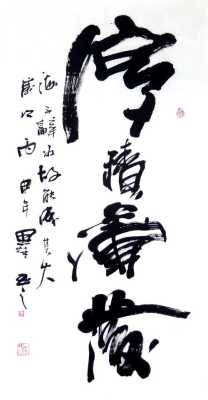 厚積薄發
海不辭水故能成其大
歲次丙申年